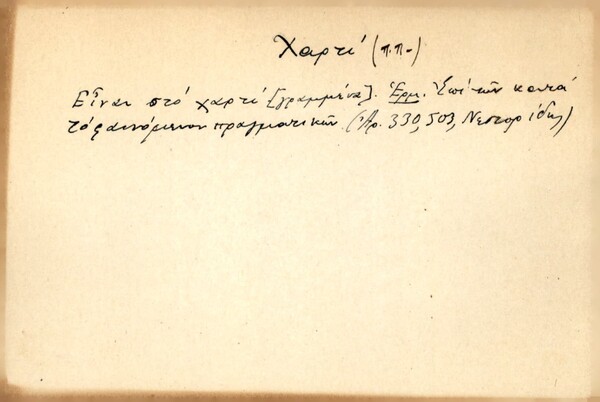 Χαρτί (π.π.)
Εἶναι στό χαρτί [γραμμένα]. Ἑρμ. Ἐπί τῶν κατά
τό φαινόμενον πραγματικῶν (Ἀρ. 330, 503, Νεστορίδης)